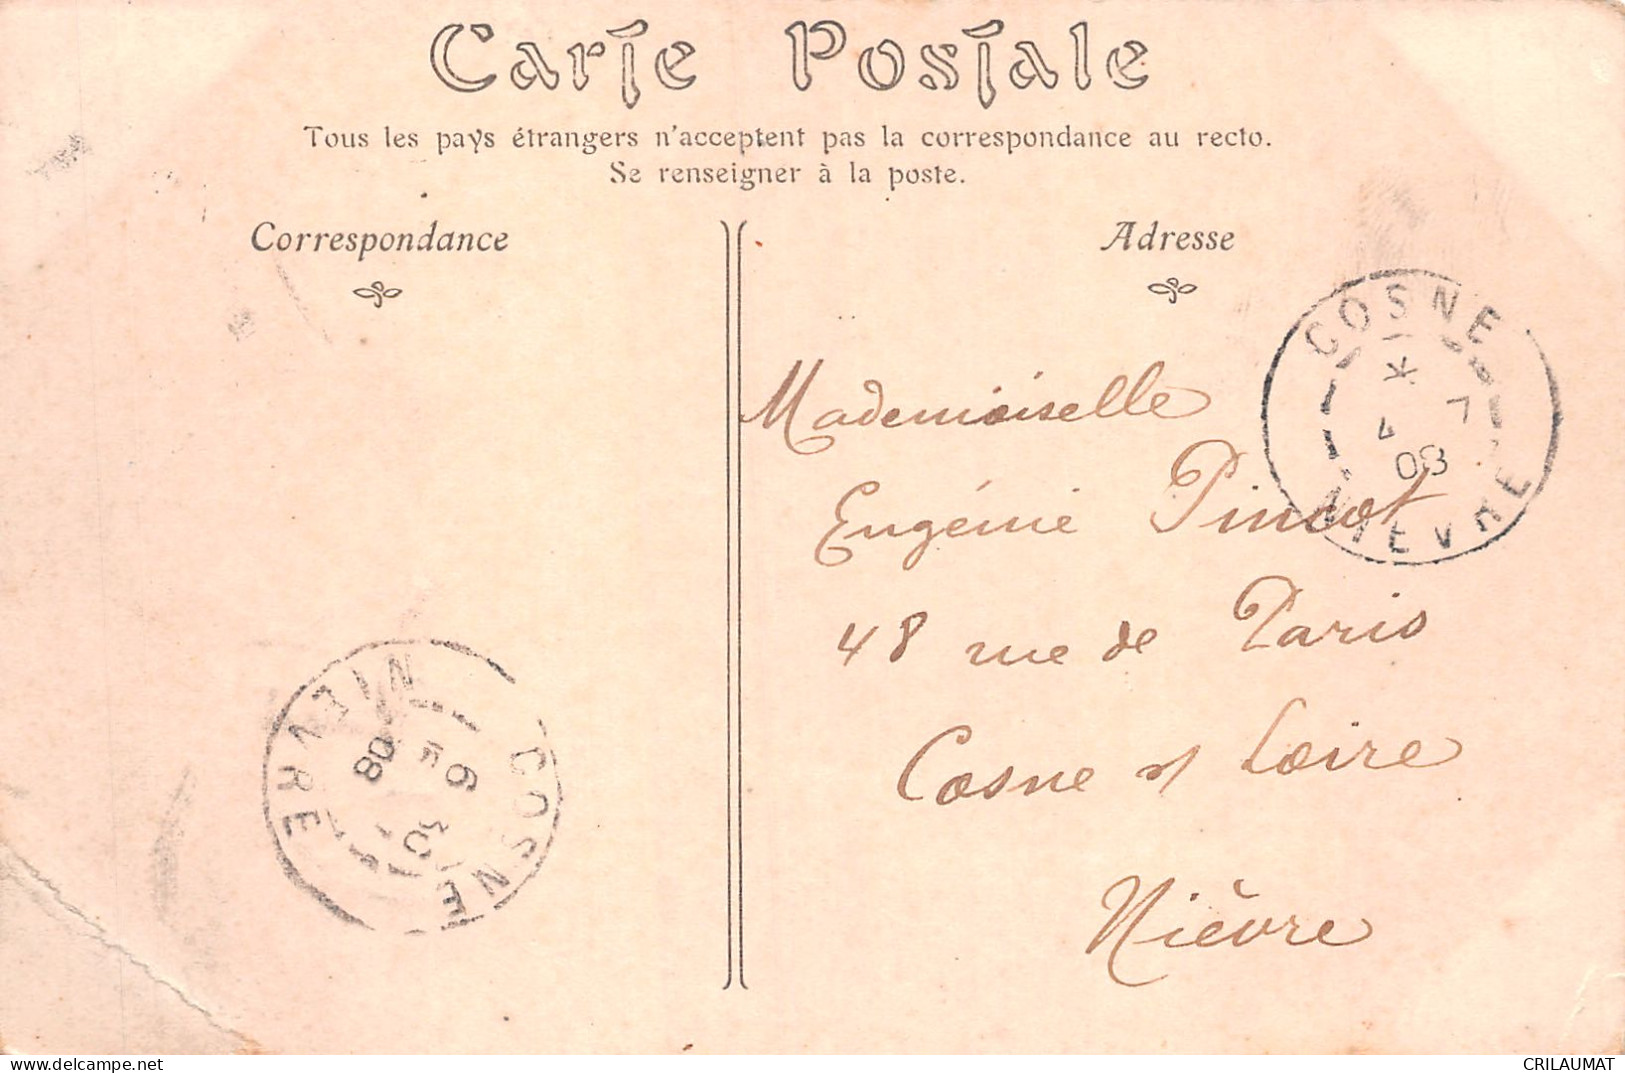 Carte Postale
Tous les pays étrangers n'acceptent pas la correspondance au recto.
Se renseigner à la poste.
Correspondance
Adresse
COSNE
7
08
NIEVRE
Mademoiselle
Eugénie Pincot
48 rue de Paris
Cosne s/ Loire
Nièvre
COSNE
08
NIEVRE
CRILAUMAT